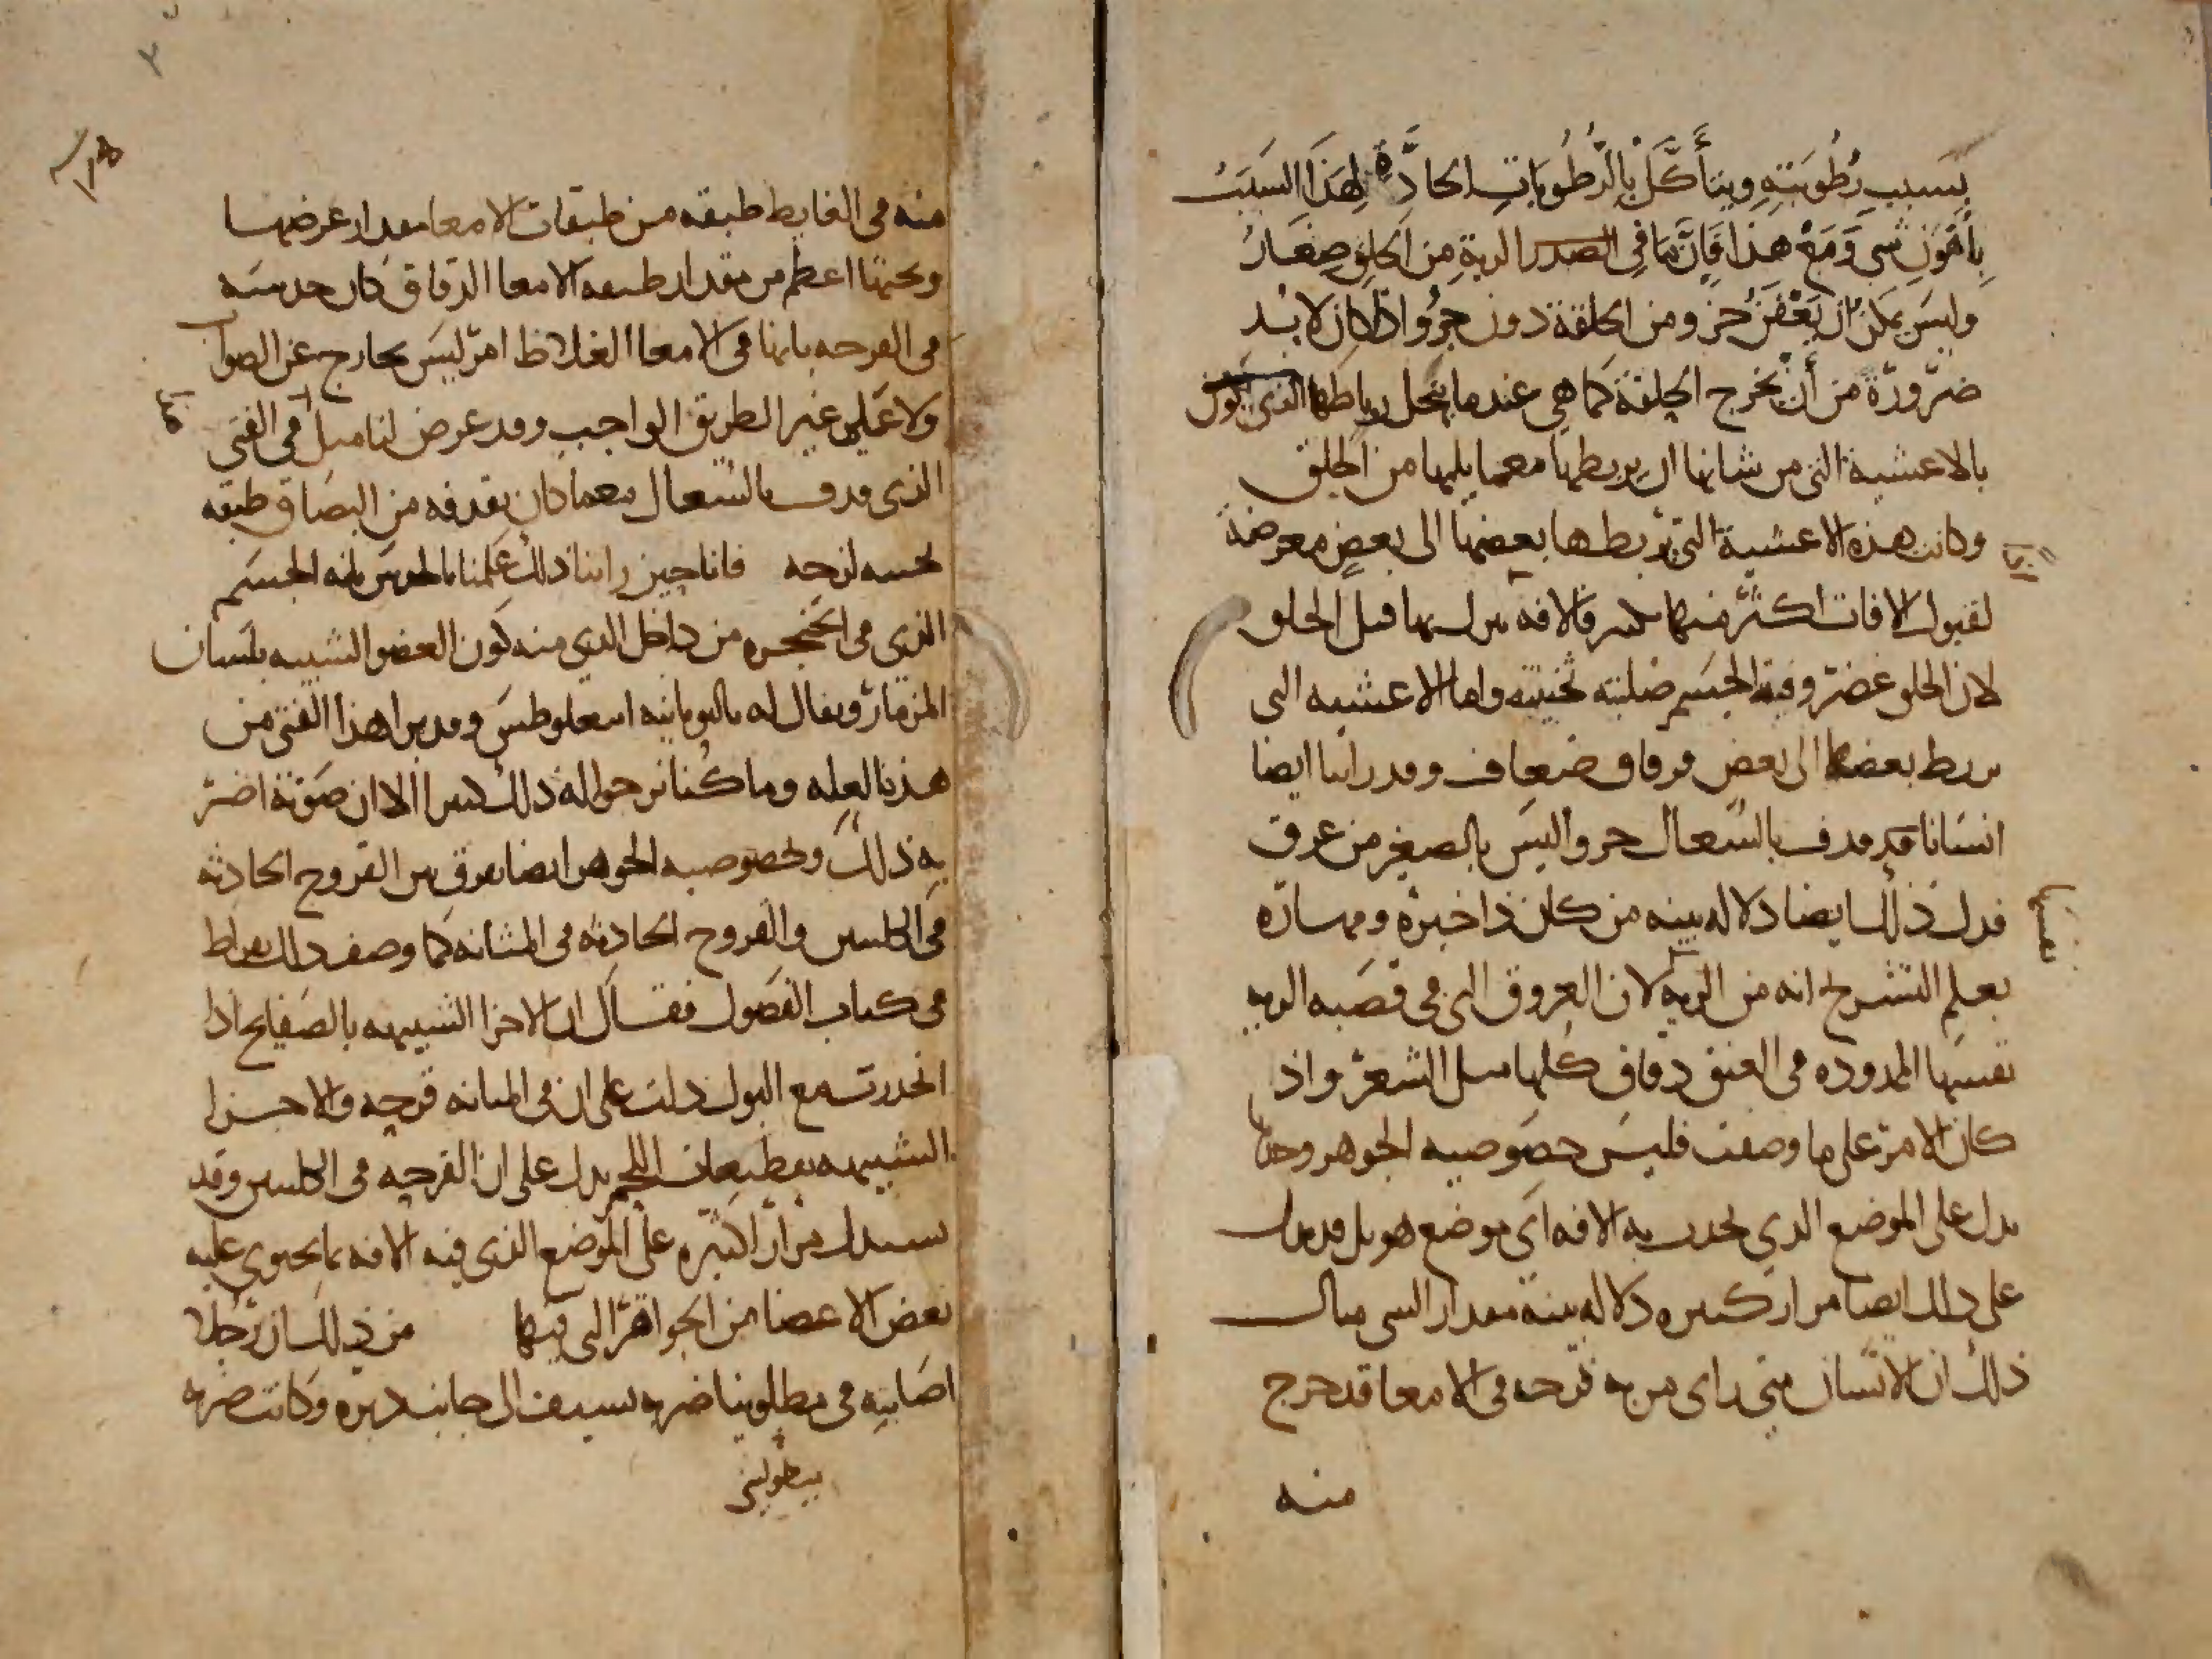 بسبب رُطُوبَتِهِ ويتأكَّلْ بِالرُطُوبَاتِ الحادَّةِ لِهَذَا السَبَبْ
بِأَهْوَنِ شي وَمَعَ هَذا فَاِنَّ مَا في الصدر الرية مِن الحلق صِغَارُ
وليسَ يمكن ان يَعْفَنَ جُزو من الحلقة دون جزُو اذا كان لابد
ضرورة من أن تخرج الحلقة كما هي عندما ينحل رباطها الذي يكون
بالاغشية التي من شانها ان يربطها معما يليها من الحلق
وكانت هذه الاغشية التي تربطها بعضها الى بعضٍ معرضة
لقبول الافات اكثر منها فالافه بها قبل الحلق
لان الحلق غضروفية الجسم صلبته ثخينته واما الاغشيه التي
تربط بعضها الى بعض فرقاق ضعاف وقد راينا ايضا
انسانا قد قذف بالسُعال جزوا ليسَ بالصغير من عرق
فدل ذلك ايضا دلاله بينه من كان ذا خبرة ومهارة
بعلم التشريح انه من الريه لان العروق التي في قصبه الريه
نفسها الممدوده في العنق دقاق كلها مثل الشعر واذ
كان الامر على ما وصفت فليسَ خصوصيه الجوهر وحدها
يدل على الموضع الذي تحدث به الافه اي موضع هو بل قد يدل
على ذلك ايضا مرارا كثيره دلاله بينة مقدار الشي مثال
ذلك ان الانسان متى راى من به قرحه في الامعا قد خرج
منه
منه في الغايط طبقه من طبقات الامعا مقدار عرضها
وثخنها اعظم من مقدار طبقه الامعا الدقاق كان حدسه
في القرحه بانها في الامعا الغلاظ امر ليسَ بخارج عن الصواب
ولا على غير الطريق الواجب وقد عرض لنا مثل في الفتى
الذي قذف بالسُعال معما كان يقذفه من البصاق طبقه
ثخينه لزجه فانا حين راينا ذلك علمنا بالحدس بانه الجسم
الذي في الحنجره من داخل الذي منه كون العضو الشبيه بلسان
المزمار ويقال له باليونانيه ابيغلوطس وقد برا هذا الفتى من
هذه العله وما كنا نرجوا له ذلك الا ان صوته اضر
به ذلك ولخصوصيه الجوهر ايضا نفرق بين القروح الحادثه
في الكليتين والقروح الحادثه في المثانه كما وصف ذلك بقراط
في كتاب الفصول فقال ان الاجزا الشبيهه بالصفايح اذا
انحدرت مع البول دلت على ان في المثانه قرحه والاجزا
الشبيهه بقطيعات اللحم يدل على ان القرحه في الكليتين وقد
يستدل مرارا كثيره على الموضع الذي فيه الافه بما يحتوي عليه
بعض الاعضا من الجواهر التي فيها من ذلك ان رجلا
اصابته في مطلوبنا ضربه بسيف الى جانب دبره وكانت ضربه